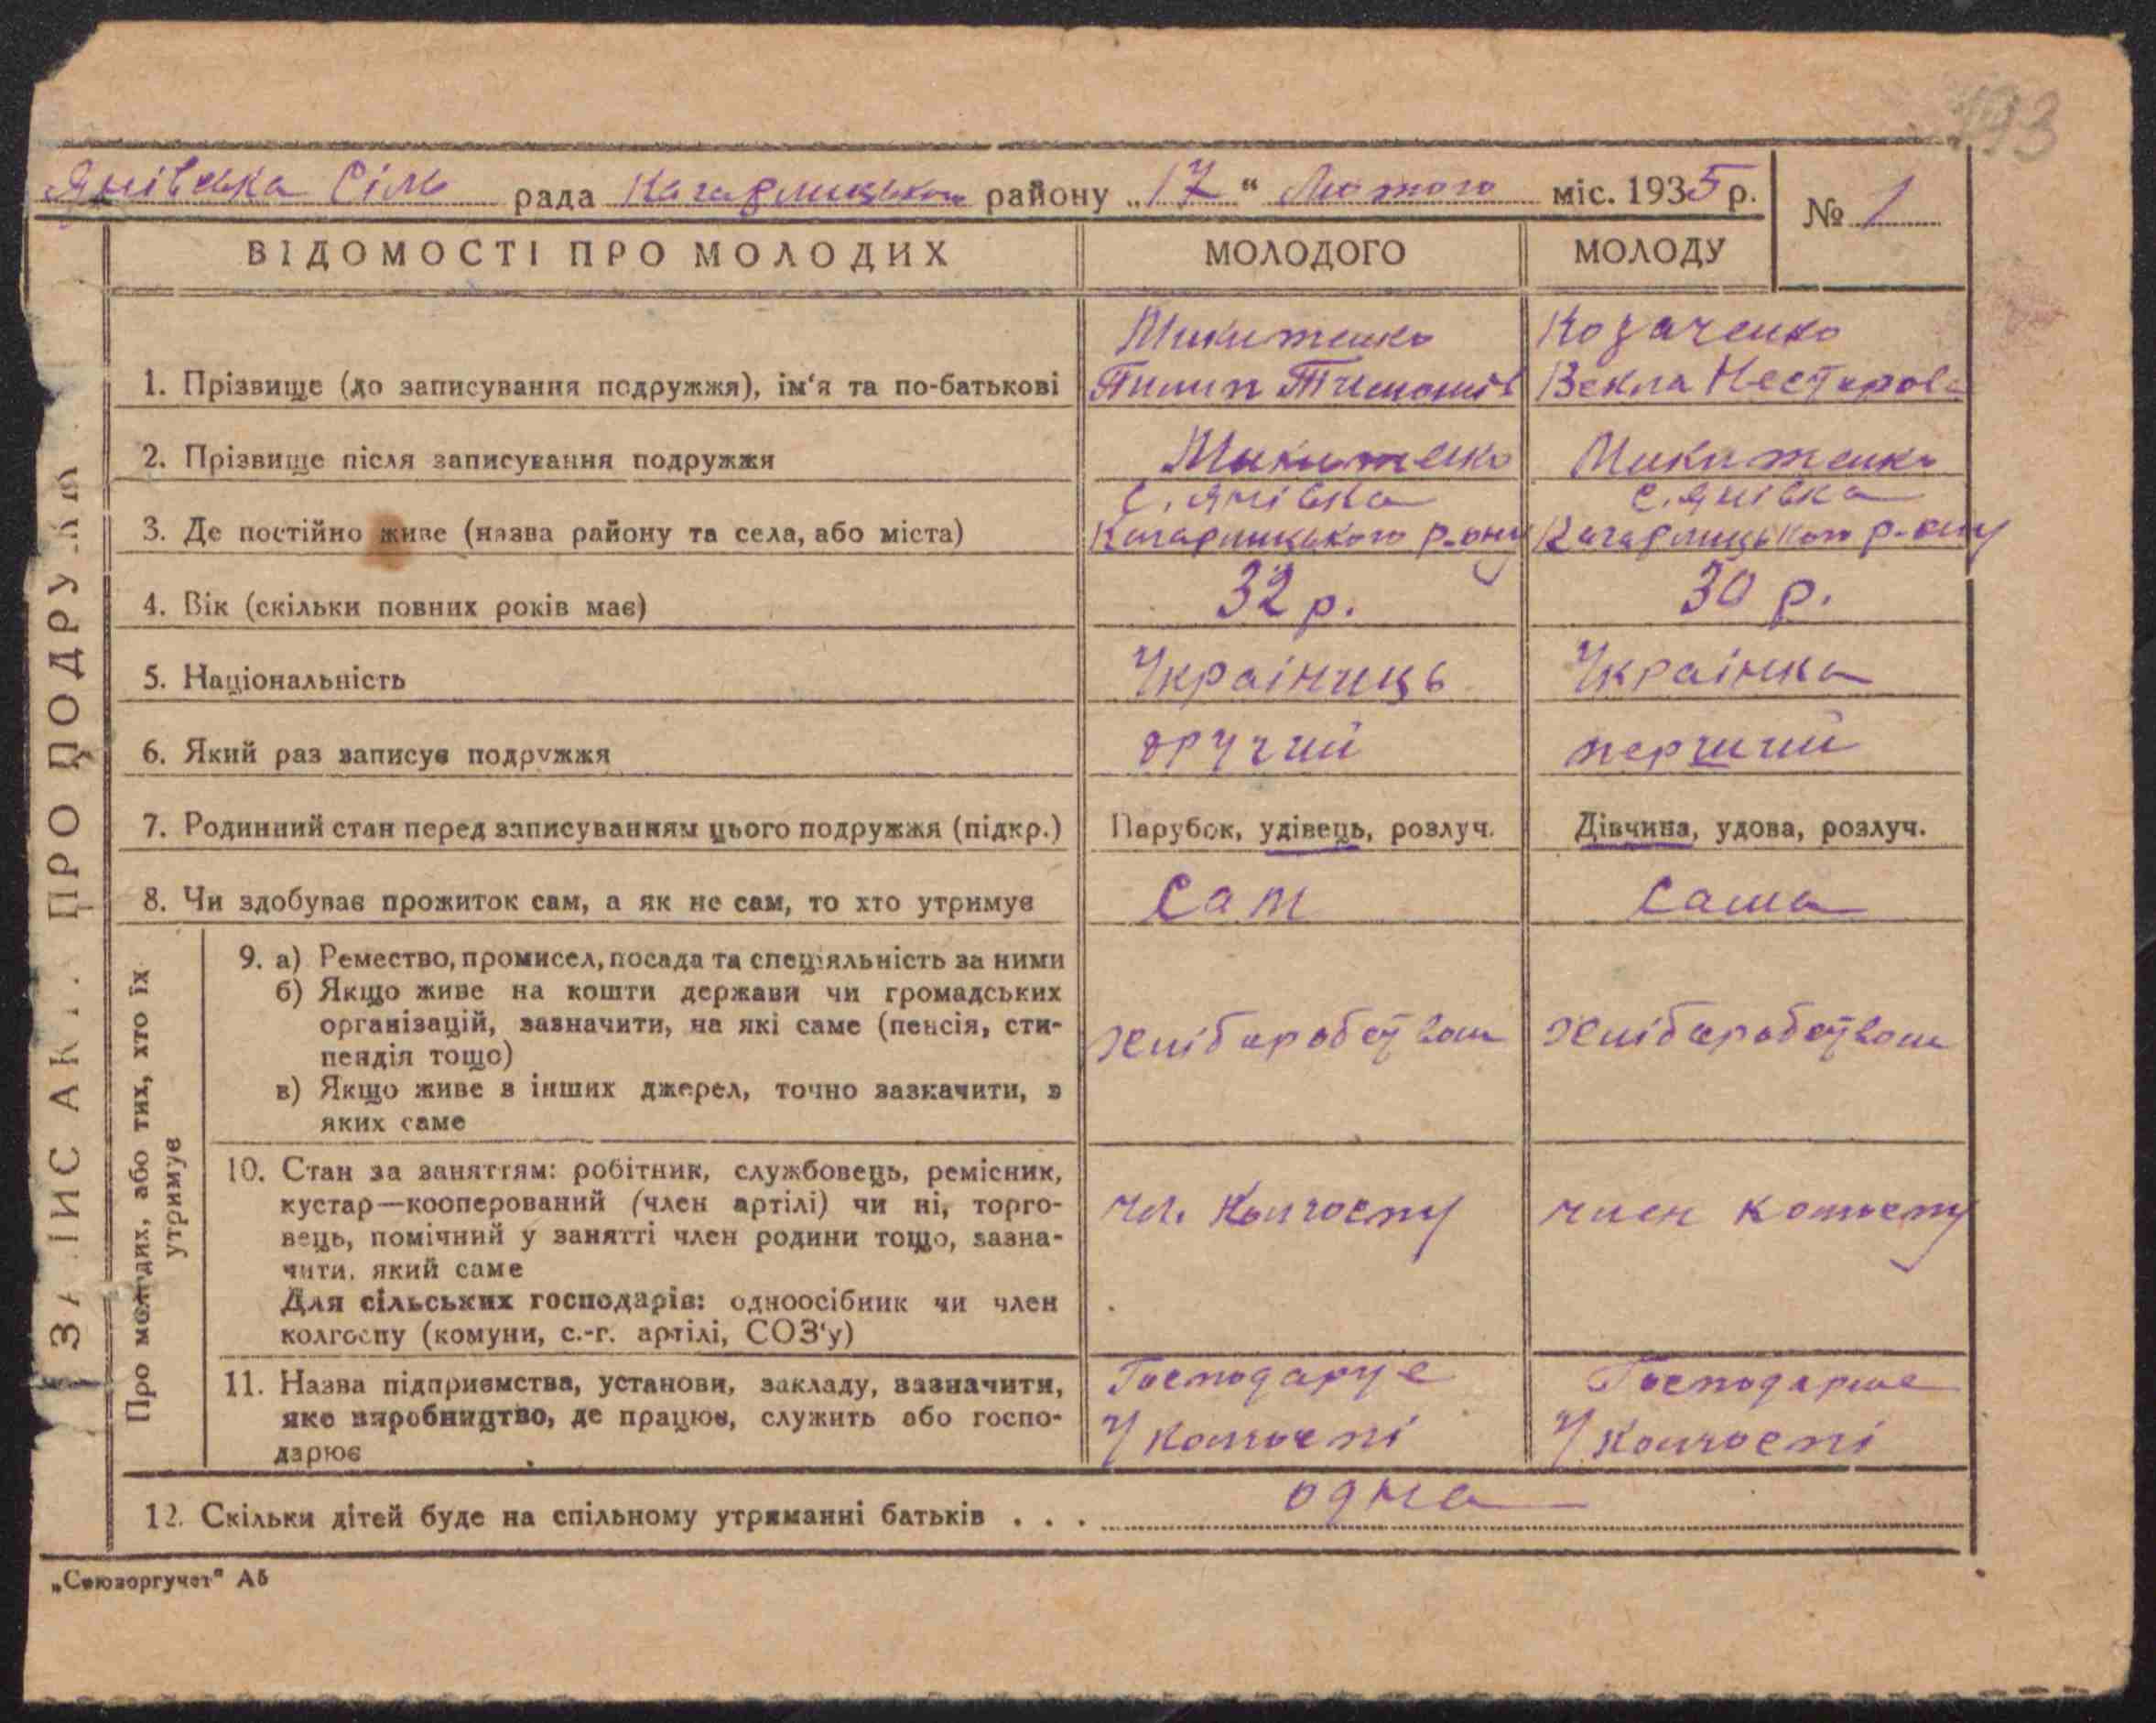 193
Янівська Сіль рада Кагарлицького району „17“ Лютого міс. 1935 р. № 1
ВІДОМОСТІ ПРО МОЛОДИХ МОЛОДОГО МОЛОДУ
ЗАПИС АКТА ПРО ПОДРУЖЖЯ
Микитенко Козаченко
1. Прізвище (до записування подружжя), ім‘я та по-батькові Пилип Тимошів Векла Нестерова
2. Прізвище після записування подружжя Микитенко Микитенко
с. Янівка с. Янівка
3. Де постійно живе (назва району та села, або міста) Кагарлицького р-ону Кагарлицького р-ону
4. Вік (скільки повних років має) 32 р. 30 р.
5. Національність Україниць Українка
6. Який раз записує подружжя другий перший
7. Родинний стан перед записуванням цього подружжя (підкр.) Парубок, удівець, розлуч. Дівчина, удова, розлуч.
8. Чи здобуває прожиток сам, а як не сам, то хто утримує Сам Сама
Про молодих, або тих, хто їх утримує
9. а) Ремество, промисел, посада та спеціяльність за ними
б) Якщо живе на кошти держави чи громадських
організацій, зазначити, на які саме (пенсія, сти-
пендія тощо) Хлібаробством Хлібаробством
в) Якщо живе з інших джерел, точно зазначити, з
яких саме
10. Стан за заняттям: робітник, службовець, ремісник,
кустар—кооперований (член артілі) чи ні, торго- чл. Колгоспу член колгоспу
вець, помічний у занятті член родини тощо, зазна-
чити, який саме
Для сільських господарів: одноосібник чи член
колгоспу (комуни, с.-г. артілі, СОЗ‘у)
11. Назва підприємства, установи, закладу, зазначити, Господарує Господарює
яке виробництво, де працює, служить або госпо- У колгоспі У колгоспі
дарює
12. Скільки дітей буде на спільному утриманні батьків . . . одна
„Союзоргучет“ Аб